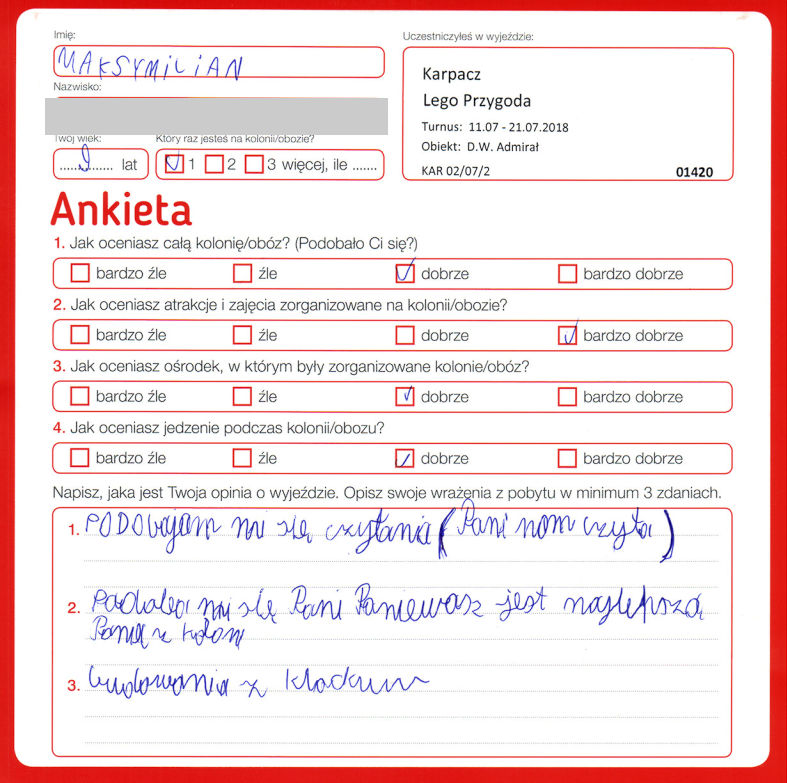 Imię:
MAKSYMILIAN
Nazwisko:
Twój wiek:
Który raz jesteś na kolonii/obozie?
......9...... lat
1 2 3 więcej, ile .......
Uczestniczyłeś w wyjeździe:
Karpacz
Lego Przygoda
Turnus: 11.07 - 21.07.2018
Obiekt: D.W. Admirał
KAR 02/07/2 01420
Ankieta
1. Jak oceniasz całą kolonię/obóz? (Podobało Ci się?)
bardzo źle źle dobrze bardzo dobrze
2. Jak oceniasz atrakcje i zajęcia zorganizowane na kolonii/obozie?
bardzo źle źle dobrze bardzo dobrze
3. Jak oceniasz ośrodek, w którym były zorganizowane kolonie/obóz?
bardzo źle źle dobrze bardzo dobrze
4. Jak oceniasz jedzenie podczas kolonii/obozu?
bardzo źle źle dobrze bardzo dobrze
Napisz, jaka jest Twoja opinia o wyjeździe. Opisz swoje wrażenia z pobytu w minimum 3 zdaniach.
1. mi się czytania (Pani nom czyta)
2. mi się Pani Paniewasz jest najlepsza
Panią z
3. budowania z